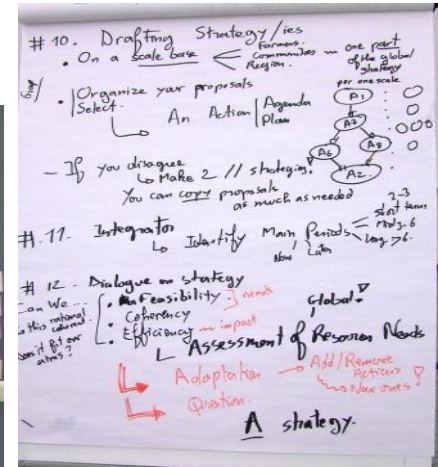 # 10. Drafting Strategy/ies
• On a scale base
Farmers.
Communities
Region.
one part
of the global
strategy
per one scale
• Organize your proposals
Select.
An Action Agenda
Plan
A1
A7
A6
A8
A2
- If you disagree
Make 2 // strategies.
You can copy proposals
as much as needed
# 11. Integrator
Identify Main Periods
Now Later
2-3
short term
Mid 3-6
Long >6.
# 12. Dialogue on strategy
Can We ...
is this rational
coherent
Does it fit our
aims?
• Feasibility needs
• Coherency
• Efficiency - impact
Global!
Assessment of Needs
Adaptation Add/Remove
Actions
New ones?
Question.
A strategy.